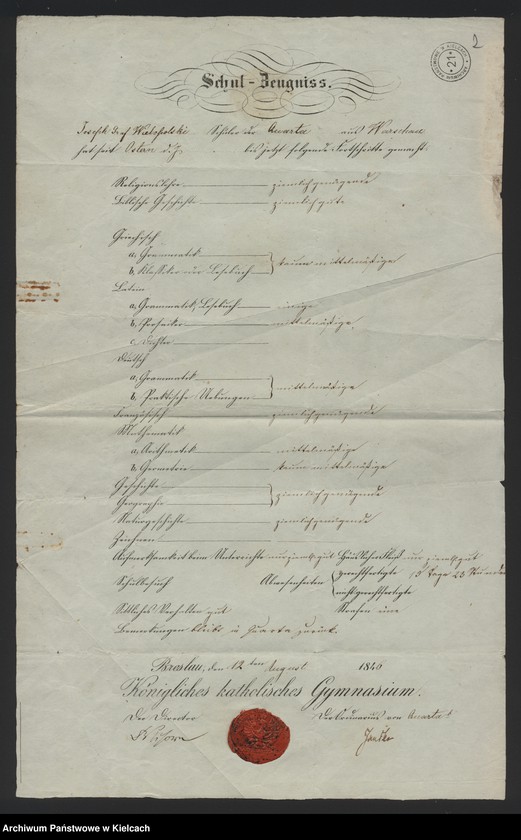 2
ARCHIWUM PAŃSTWOWE W KIELCACH
21
Schul-Zeugniss.
Wielopolski Schüler der Quarta aus Warschau
hat seit Ostern d. J. bis jetzt folgende Fortschritte gemacht:
Religionslehre ziemlichgenügende
Biblische Geschichte ziemlich gute
Griechisch
a, Grammatik
b, Klassiker oder Lesebuch kaum mittelmäßige
Latein
a, Grammatik, Lesebuch
b, Prosaiker mittelmäßige
c, Dichter
Deutsch
a, Grammatik
b, Praktische Uebungen mittelmäßige
Französisch ziemlichgenügende
Mathematik
a, Arithmetik mittelmäßige
b, Geometrie kaum mittelmäßige
Geschichte
Geographie ziemlichgenügende
Naturgeschichte ziemlichgenügende
Zeichnen
Aufmerksamkeit beim Unterrichte nur ziemlich gut Häuslicher Fleiß nur ziemlich gut
Schulbesuch Abwesenheiten gerechtfertigte 15 Tage 23 Stunden
nicht gerechtfertigte
Sittliches Verhalten gut Strafen eine
Bemerkungen bleibt in Quarta zurück.
Breslau, den 12ten August 1840
Königliches katholisches Gymnasium.
Der Director Der Ordinarius von Quarta
Janske
Archiwum Państwowe w Kielcach